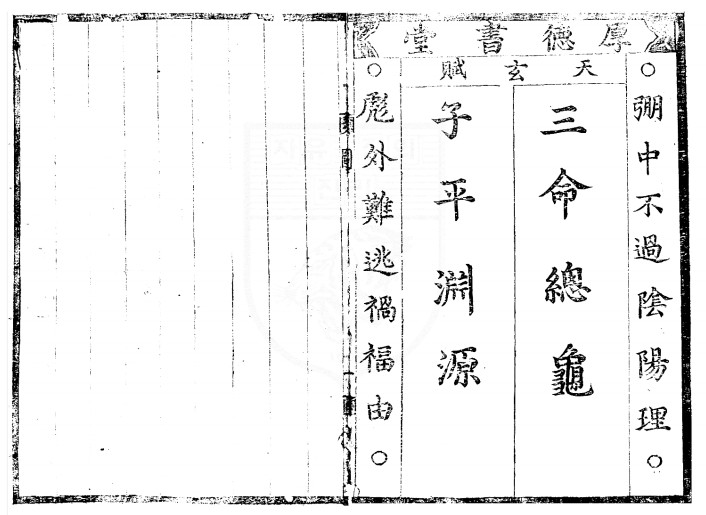 厚德書堂
天玄賦
○弸中不過陰陽理○
三命總龜
子平淵源
○彪外難逃禍福由○